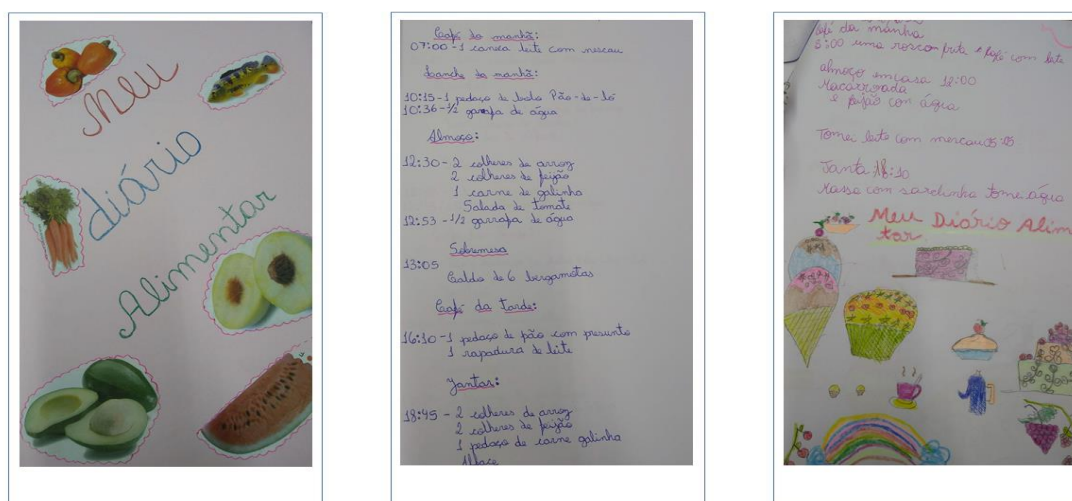 Meu
diário
Alimentar
Café da manhã:
07:00 - 1 caneca leite com nescau
Lanche da manhã:
10:15 - 1 pedaço de bolo Pão-de-ló
10:36 - 1/2 garrafa de água
Almoço:
12:30 - 2 colheres de arroz
2 colheres de feijão
1 carne de galinha
Salada de tomate
12:53 - 1/2 garrafa de água
Sobremesa
13:05
Caldo de 6 bergamotas
Café da tarde:
16:10 - 1 pedaço de pão com presunto
1 rapadura de leite
Jantar:
18:45 - 2 colheres de arroz
2 colheres de feijão
1 pedaço de carne galinha
Alface
café da manha
8:00 uma rosca frita e café com leite
almoço em casa 12:00
Macarroada
e feijão con água
Tomei leite com mescau
Janta 18:30
Massa com sardinha tome água
Meu Diário Alimen
tar